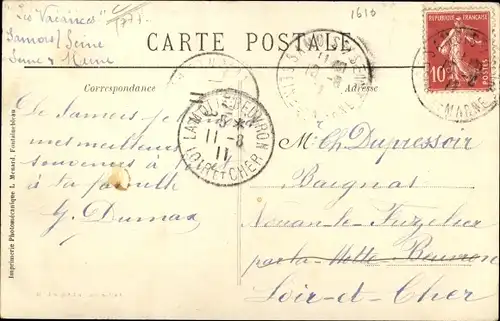 "Les Vacances"
Samois s/ Seine
Seine & Marne
1610
CARTE POSTALE
Correspondance
Adresse
REPUBLIQUE FRANCAISE
10
LAMOTTE-BEUVRON
11-8
11
LOIR-ET-CHER
De Samois je
mes meilleurs
souvenirs à
à ta
G. Dumas
M. Ch. Dupressoir
Nouan-le-Fuzelier
par la Motte Beuvron
Loir-et-Cher
Imprimerie Photomécanique L. Menard, Fontainebleau